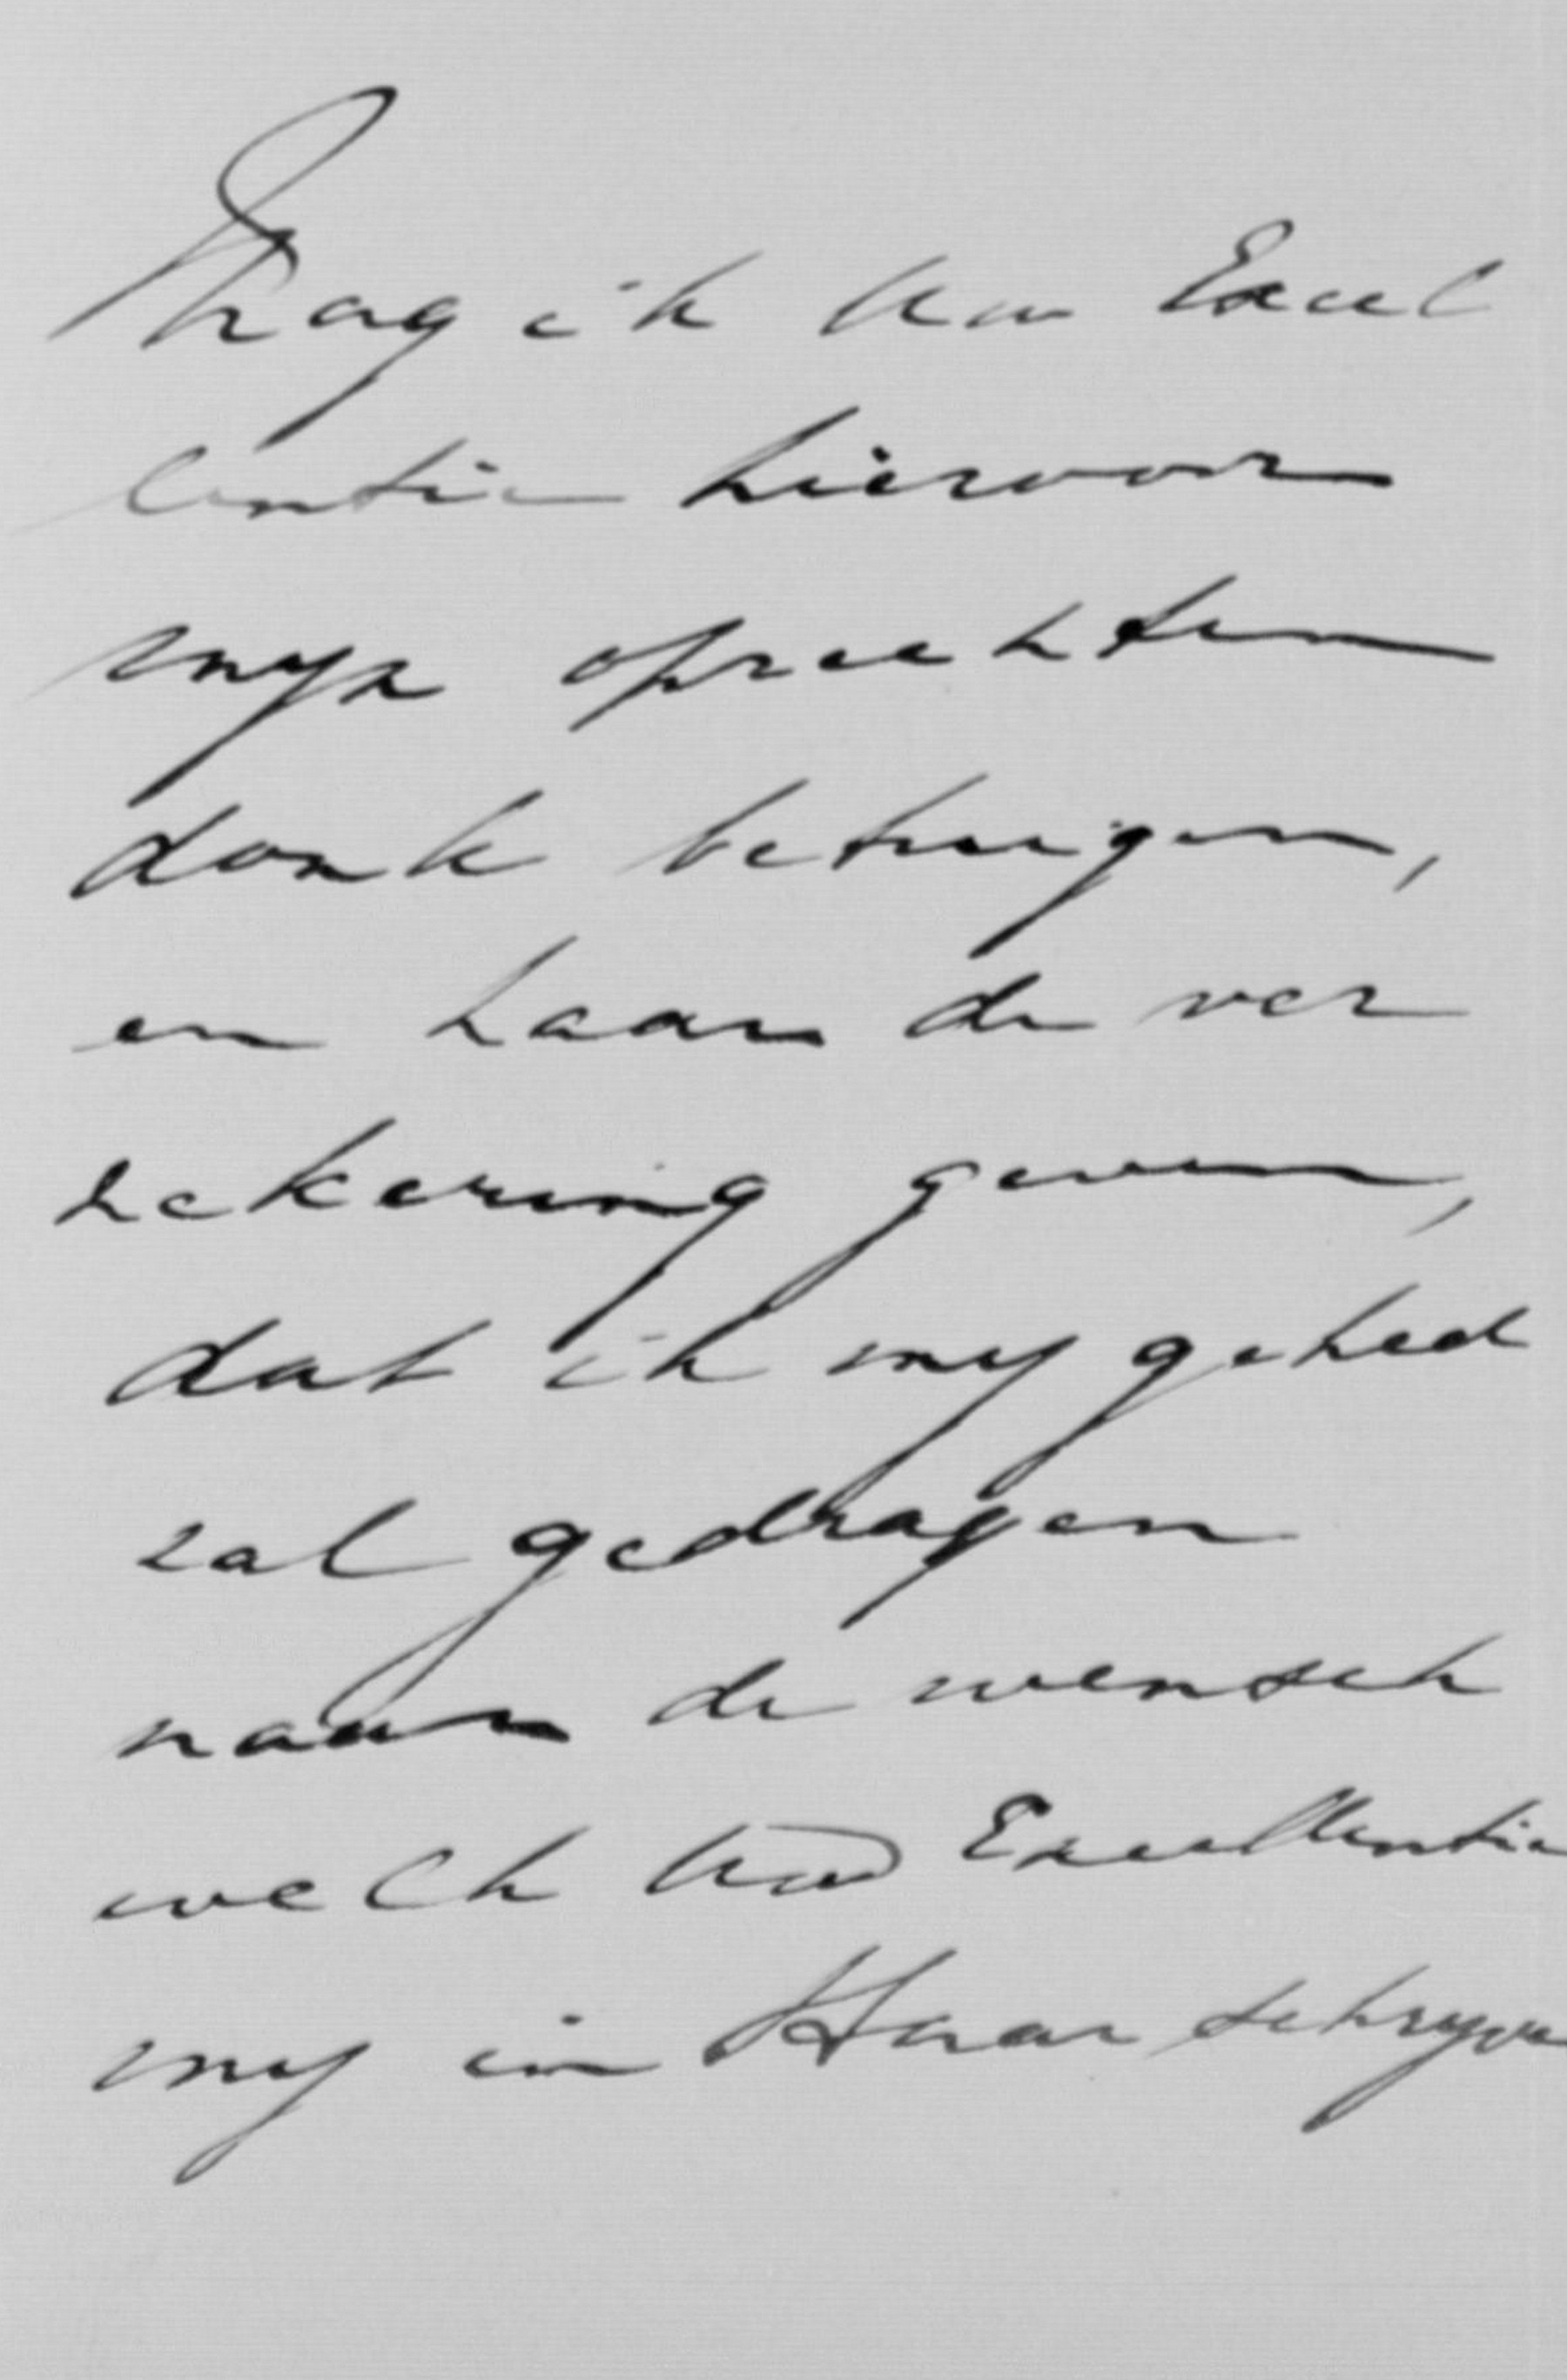 Mag ik Uw Excel
lentie hiervoor
mijn oprechten
dank betuigen,
en haar de ver
zekering geven,
dat ik mij geheel
zal gedragen
naar de wensch
welk Uw Excellentie
mij in Haar schrijven